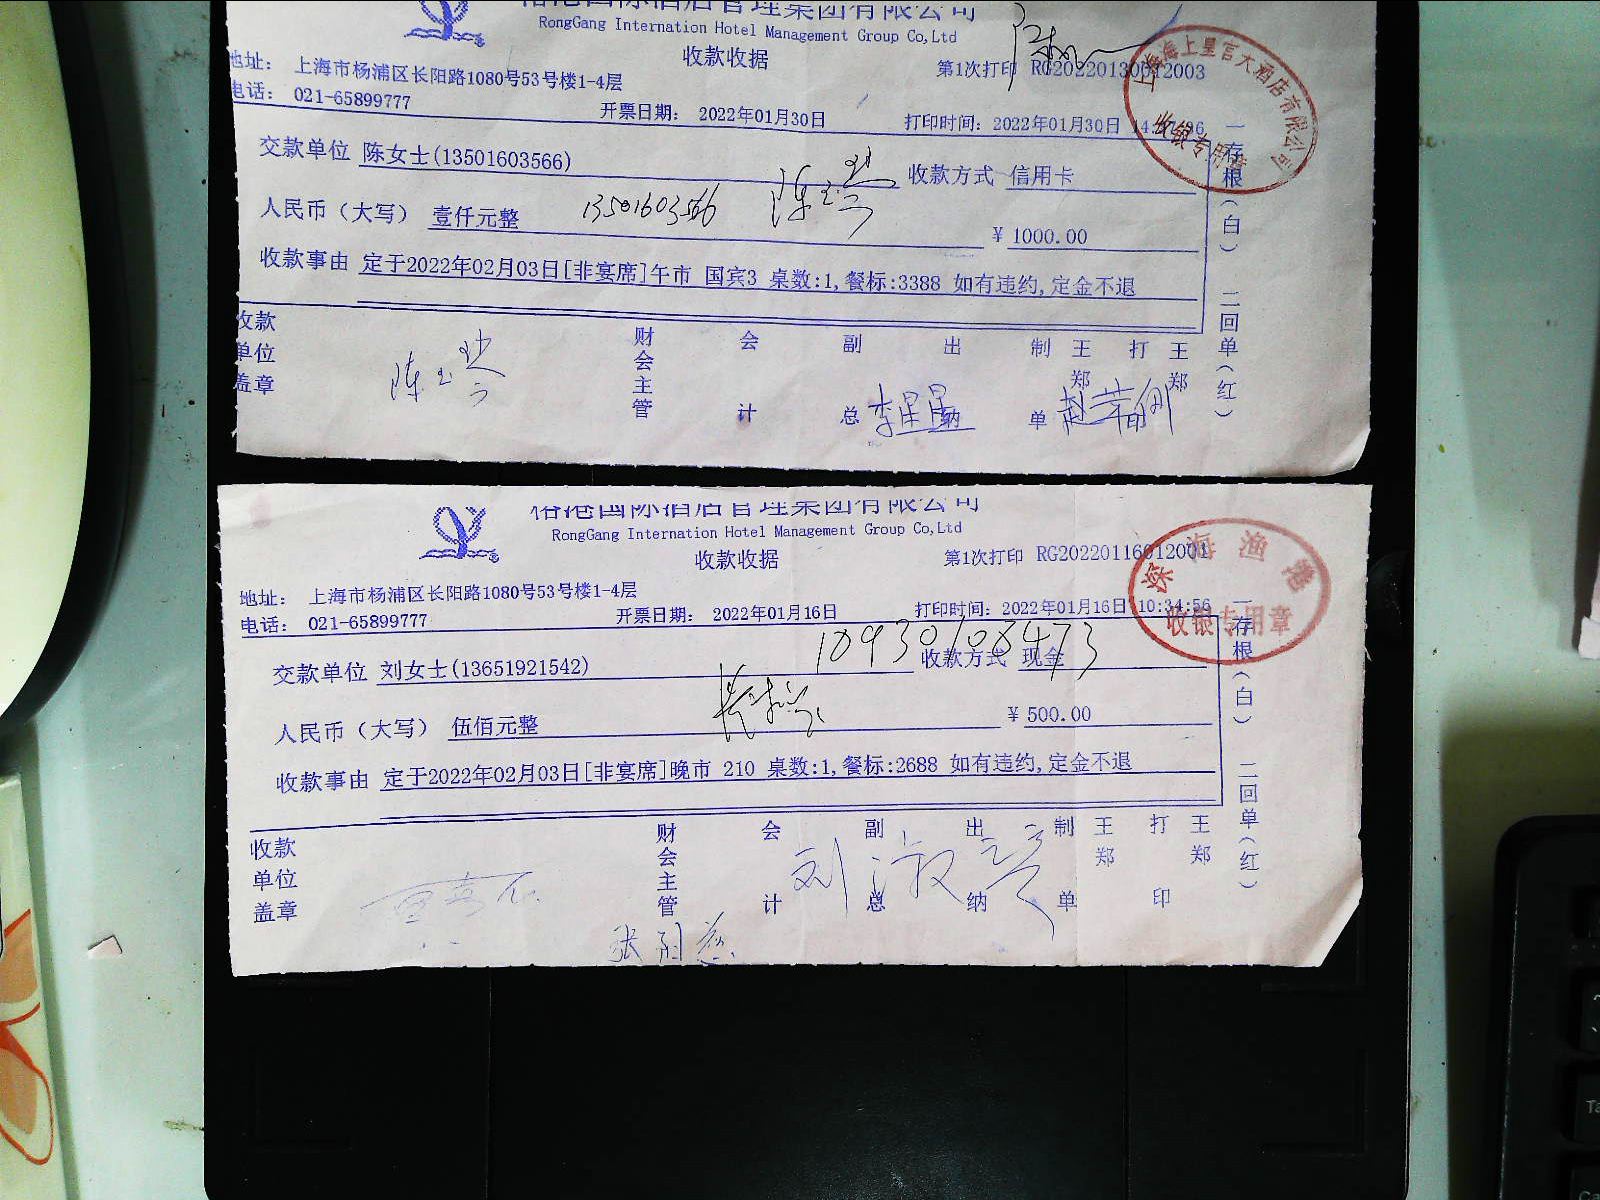 RongGang Internation Hotel Management Group Co,Ltd
收款收据
第1次打印 RG20220130012003
地址： 上海市杨浦区长阳路1080号53号楼1-4层
电话： 021-65899777
开票日期： 2022年01月30日
打印时间：2022年01月30日
上海海上皇宫大酒店有限公司
收银专用章
交款单位 陈女士(13501603566)
收款方式 信用卡
人民币（大写） 壹仟元整
13501603566
¥ 1000.00
收款事由 定于2022年02月03日[非宴席]午市 国宾3 桌数:1,餐标:3388 如有违约,定金不退
一存根（白） 二回单（红）
收款单位盖章
财会主管
会计
副总
出纳
制单
王郑
打
王郑
李星星
裕港国际酒店管理集团有限公司
RongGang Internation Hotel Management Group Co,Ltd
收款收据
第1次打印 RG20220116012001
地址： 上海市杨浦区长阳路1080号53号楼1-4层
电话： 021-65899777
开票日期： 2022年01月16日
打印时间：2022年01月16日 10:34:56
深海渔港
收银专用章
10930108473
交款单位 刘女士(13651921542)
收款方式 现金
人民币（大写） 伍佰元整
¥ 500.00
收款事由 定于2022年02月03日[非宴席]晚市 210 桌数:1,餐标:2688 如有违约,定金不退
一存根（白） 二回单（红）
收款单位盖章
财会主管
会计
副总
出纳
制单
王郑
打印
王郑